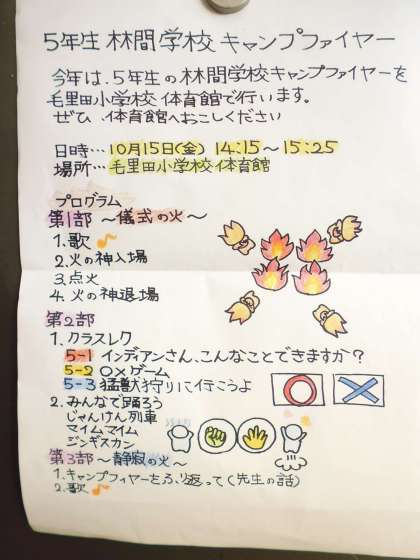 5年生 林間学校 キャンプファイヤー
今年は、5年生の林間学校キャンプファイヤーを
毛里田小学校 体育館で行います。
ぜひ 体育館へおこしください
日時…10月15日(金) 14:15〜15:25
場所…毛里田小学校体育館
プログラム
第1部 〜儀式の火〜
1.歌
2.火の神入場
3.点火
4.火の神退場
第2部
1.クラスレク
5-1 インディアンさん、こんなことできますか？
5-2 ○×ゲーム
5-3 猛獣狩りに行こうよ
2.みんなで踊ろう
じゃんけん列車
マイムマイム
ジンギスカン
第3部 〜静寂の火〜
1.キャンプファイヤーをふり返って(先生の話)
2.歌